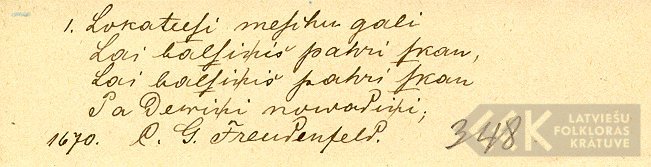 1. Lokateesi meschu gali
Lai balsiņis pahri skan,
Lai balsiņis pahri skan
Pa Deewiņi nowadiņi;
1670. C. G. Freudenfeld. 348
LATVIEŠU
FOLKLORAS
KRĀTUVE